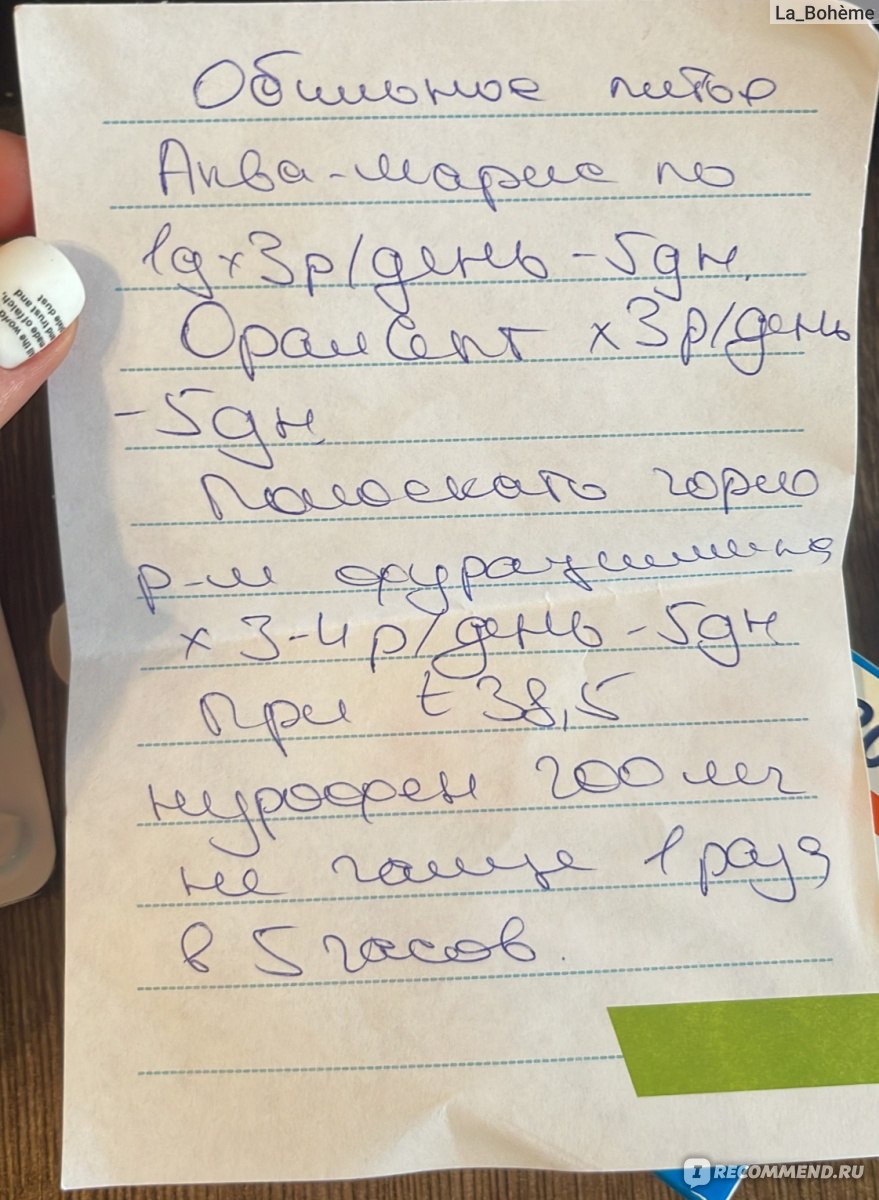 La_Bohème
Обильное питье
Аква-Марис по
1д х 3р/день - 5дн.
Оралсепт х 3р/день
- 5дн
Полоскать горло
р-м фурацилина
х 3-4 р/день - 5дн
При t 38,5
нурофен 200 мг
не чаще 1 раза
в 5 часов.
RECOMMEND.RU